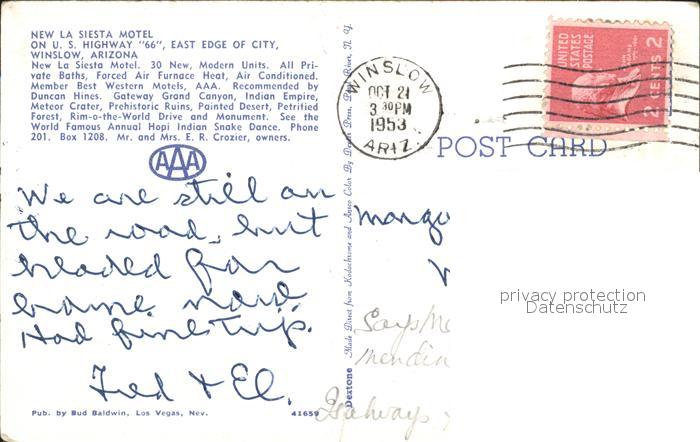 NEW LA SIESTA MOTEL
ON U. S. HIGHWAY "66", EAST EDGE OF CITY,
WINSLOW, ARIZONA
New La Siesta Motel. 30 New, Modern Units. All Pri-
vate Baths, Forced Air Furnace Heat, Air Conditioned.
Member Best Western Motels, AAA. Recommended by
Duncan Hines. Gateway Grand Canyon, Indian Empire,
Meteor Crater, Prehistoric Ruins, Painted Desert, Petrified
Forest, Rim-o-the-World Drive and Monument. See the
World Famous Annual Hopi Indian Snake Dance. Phone
201. Box 1208. Mr. and Mrs. E. R. Crozier, owners.
AAA
We are still on
the road, but
headed for
home now
Had fine trip.
Fred + El.
Pub. by Bud Baldwin, Las Vegas, Nev.
41659
Dextone Made Direct from Kodachrome and Ansco Color By Dexter Press, Pearl River, N. Y.
WINSLOW
OCT 21
3 30 PM
1953
ARIZ.
UNITED
STATES
POSTAGE
2 CENTS 2
POST CARD
Says
privacy protection
Datenschutz